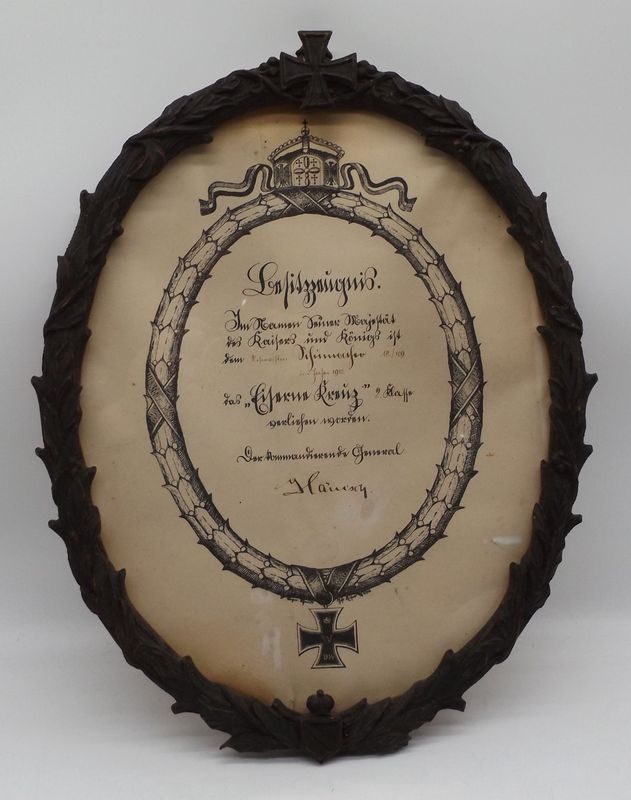 Besitzzeugnis.
Im Namen Seiner Majestät
des Kaisers und Königs ist
dem Schumacher 12./109
das „Eiserne Kreuz" 2. Klasse
verliehen worden.
Der kommandierende General
W
1914